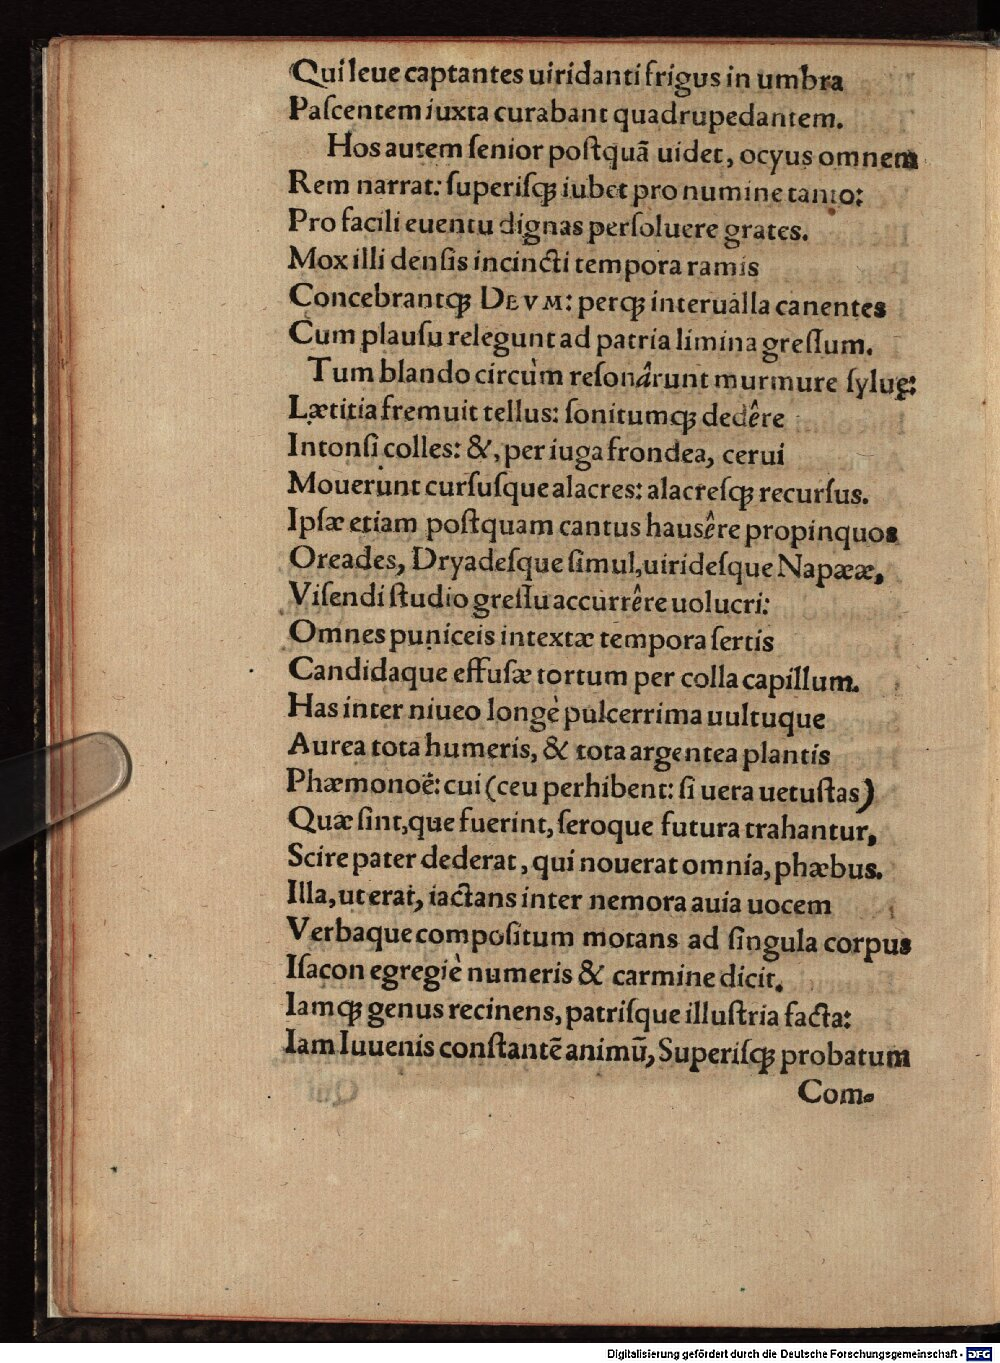 Qui leue captantes uiridanti frigus in umbra
Paſcentem iuxta curabant quadrupedantem.
Hos autem ſenior poſtquã uidet, ocyus omnem
Rem narrat: ſuperiſqꝫ iubet pro numine tanto:
Pro facili euentu dignas perſoluere grates.
Mox illi denſis incincti tempora ramis
Concebrantqꝫ DEVM: perqꝫ interualla canentes
Cum plauſu relegunt ad patria limina greſſum.
Tum blando circùm reſonârunt murmure ſyluę:
Lætitia fremuit tellus: ſonitumqꝫ dedêre
Intonſi colles: &, per iuga frondea, cerui
Mouerunt curſuſque alacres: alacreſqꝫ recurſus.
Ipſæ etiam poſtquam cantus hausêre propinquos
Oreades, Dryadeſque ſimul, uirideſque Napææ,
Viſendi ſtudio greſſu accurrêre uolucri:
Omnes puniceis intextæ tempora ſertis
Candidaque effuſæ tortum per colla capillum.
Has inter niueo longè pulcerrima uultuque
Aurea tota humeris, & tota argentea plantis
Phæmonoë: cui (ceu perhibent: ſi uera uetuſtas)
Quæ ſint, que fuerint, ſeroque futura trahantur,
Scire pater dederat, qui nouerat omnia, phæbus.
Illa, ut erat, iactans inter nemora auia uocem
Verbaque compoſitum motans ad ſingula corpus
Iſacon egregiè numeris & carmine dicit.
Iamqꝫ genus recinens, patriſque illuſtria facta:
Iam Iuuenis conſtantẽ animũ, Superiſqꝫ probatum
Com-
Digitalisierung gefördert durch die Deutsche Forschungsgemeinschaft - DFG